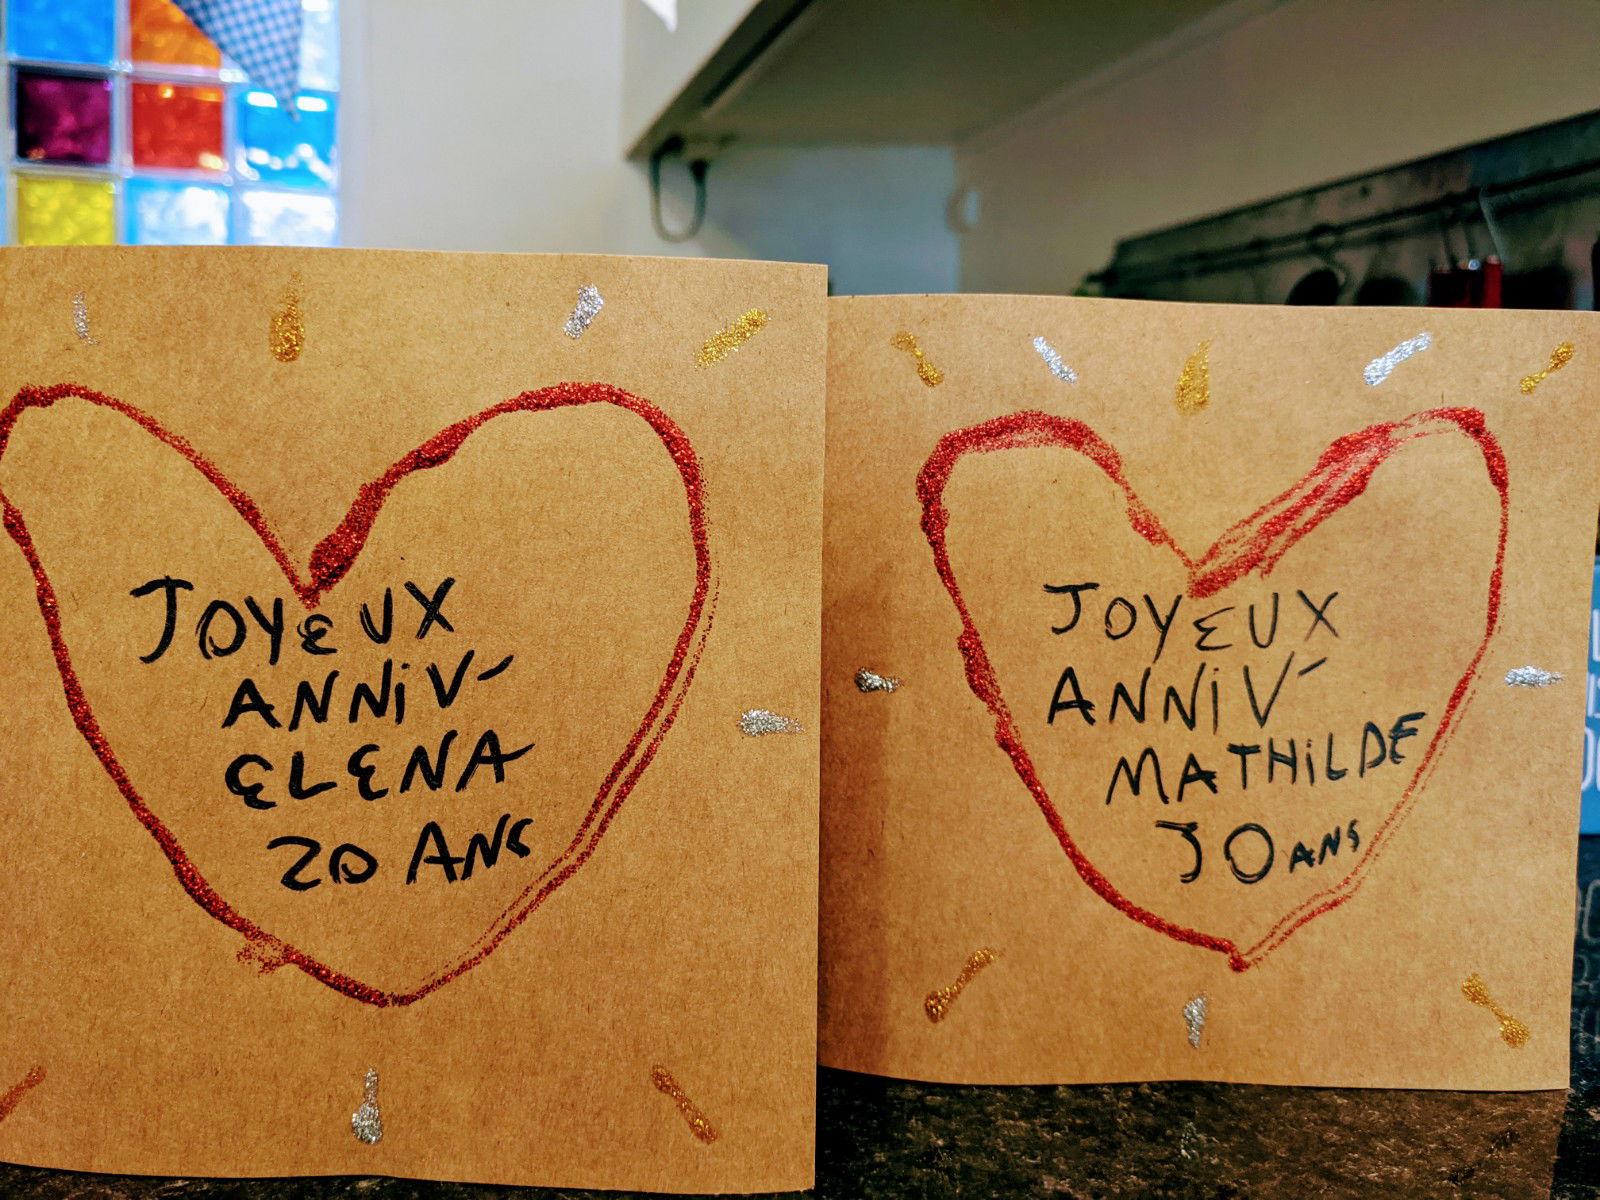 JOYEUX
ANNIV-
ELENA
20 ANS
JOYEUX
ANNIV-
MATHILDE
JO ANS